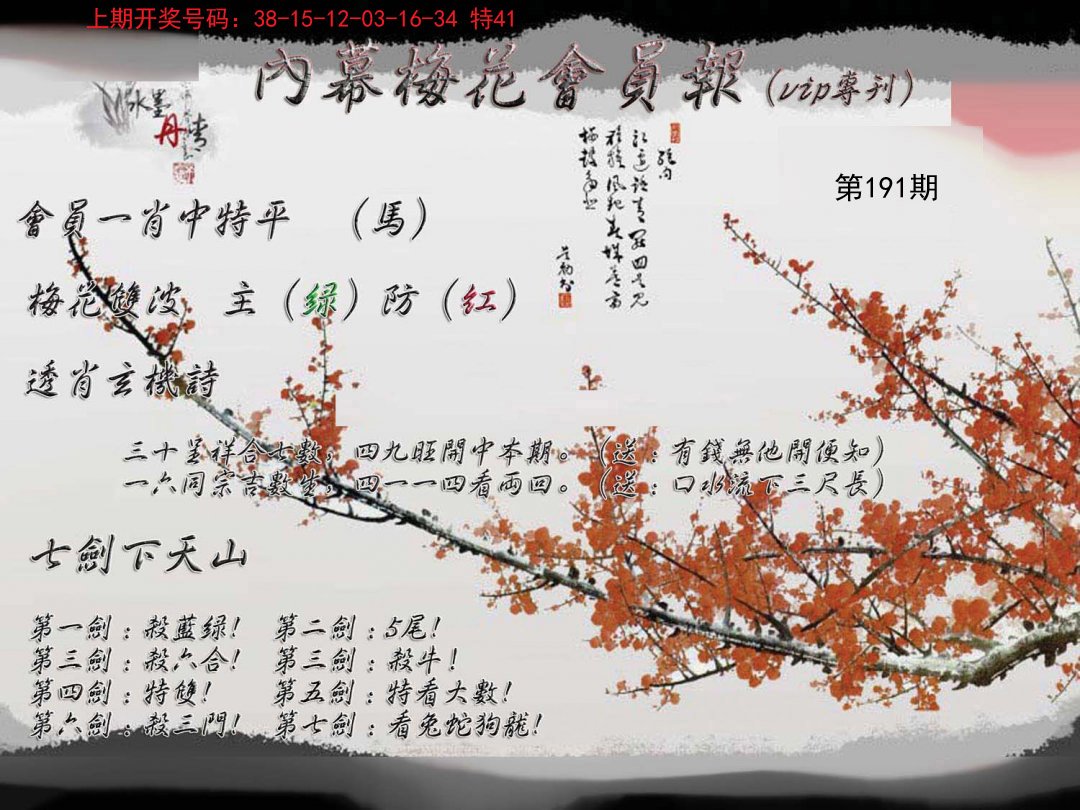 上期开奖号码：38-15-12-03-16-34 特41
內幕梅花會員報（vip專刊）
水墨
丹青
第191期
會員一肖中特平　（馬）
梅花雙波　主（绿）防（红）
透肖玄機詩
三十呈祥合七數，四九旺開中本期。（送：有錢無他開便知）
一六同宗吉數生，四一一四看両回。（送：口水流下三尺長）
七劍下天山
第一劍：殺藍绿！　第二劍：5尾！
第三劍：殺六合！　第三劍：殺牛！
第四劍：特雙！　第五劍：特看大數！
第六劍：殺三門！　第七劍：看兔蛇狗龍！